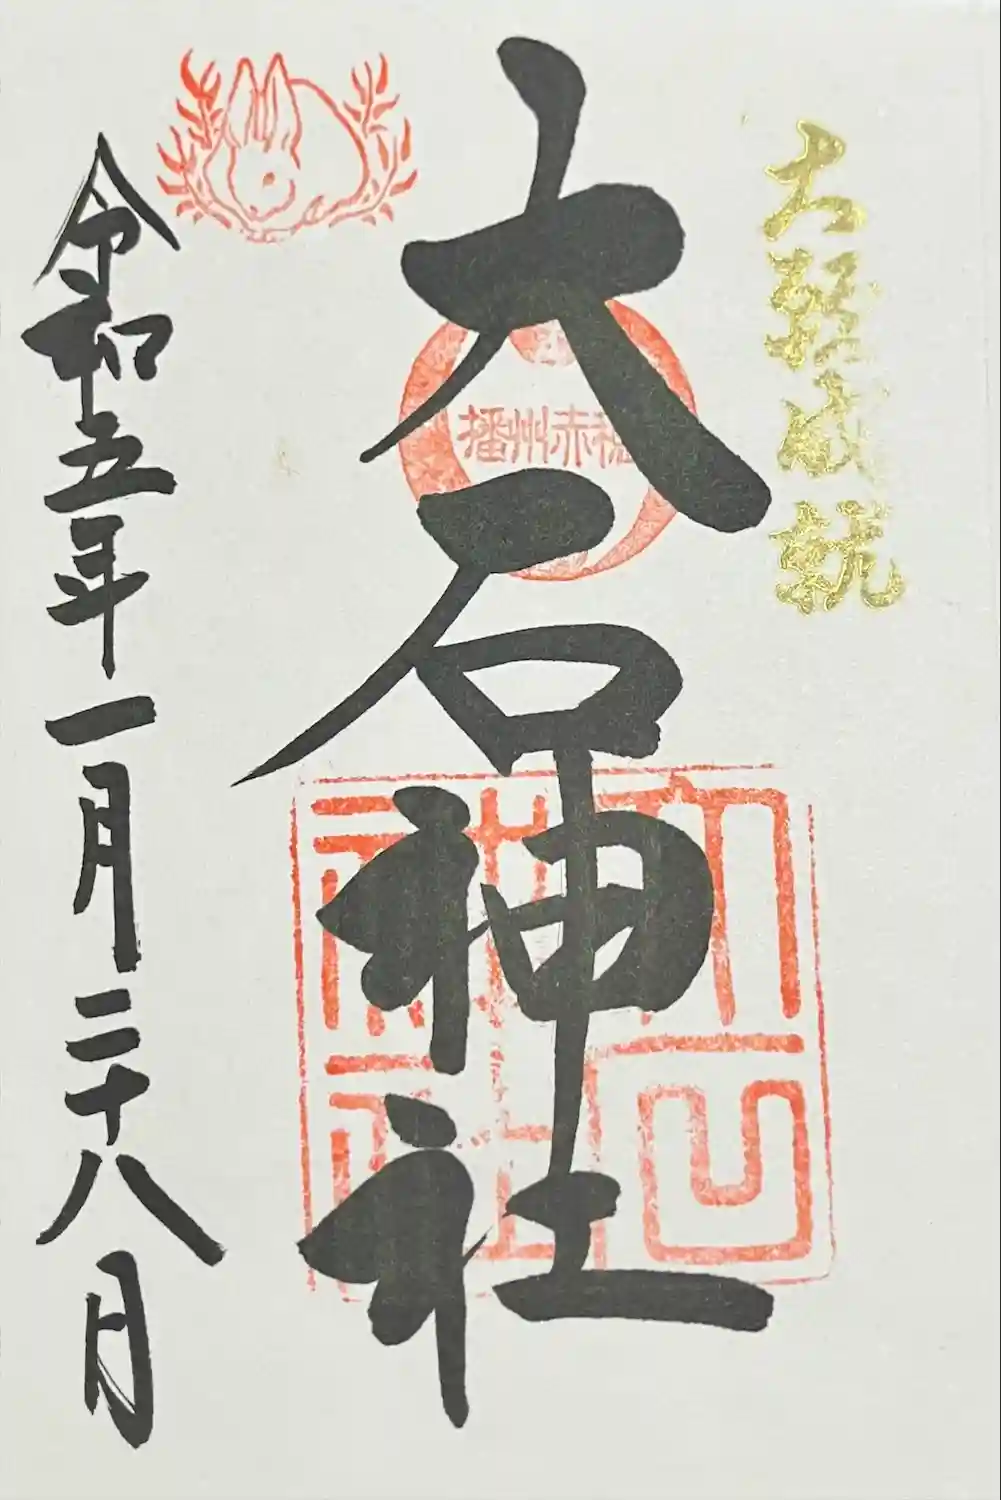 大願成就
大石神社
播州赤穂
大石神社
令和五年一月二十八日